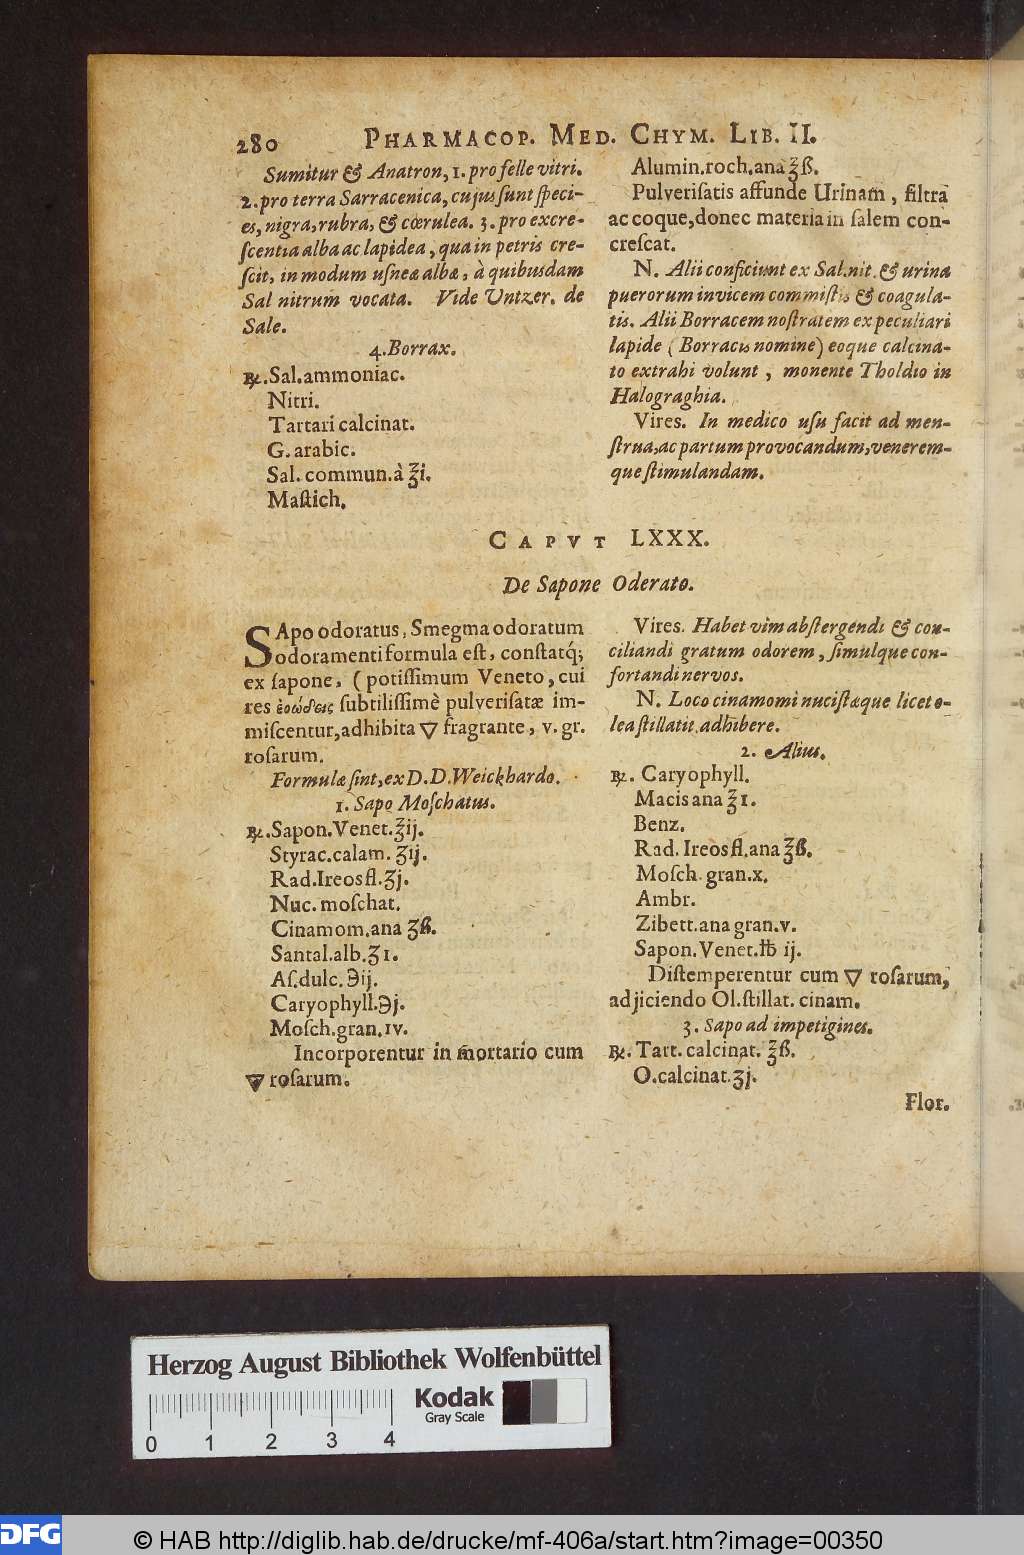 280 PHARMACOP. MED. CHYM. LIB. II.
Sumitur & Anatron, 1. pro felle vitri.
2. pro terra Sarracenica, cujus sunt speci-
es, nigra, rubra, & cœrulea. 3. pro excre-
scentia alba ac lapidea, qua in petris cre-
scit, in modum usneæ albæ, à quibusdam
Sal nitrum vocata. Vide Untzer. de
Sale.
4. Borrax.
℞. Sal. ammoniac.
Nitri.
Tartari calcinat.
G. arabic.
Sal. commun. à ℥i.
Mastich.
Alumin. roch. ana ℥ß.
Pulverisatis affunde Urinam, filtra
ac coque, donec materia in salem con-
crescat.
N. Alii conficiunt ex Sal. nit. & urina
puerorum invicem commistis & coagula-
tis. Alii Borracem nostratem ex peculiari
lapide (Borracis nomine) eoque calcina-
to extrahi volunt, monente Tholdio in
Halograghia.
Vires. In medico usu facit ad men-
strua, ac partum provocandum, venerem-
que stimulandam.
CAPVT LXXX.
De Sapone Oderato.
SApo odoratus, Smegma odoratum
odoramenti formula est, constatq́;
ex sapone, (potissimum Veneto, cui
res ἐυώδεις subtilissimè pulverisatæ im-
miscentur, adhibita ▽ fragrante, v. gr.
rosarum.
Formulæ sint, ex D. D. Weickhardo.
1. Sapo Moschatus.
℞. Sapon. Venet. ℥ij.
Styrac. calam. ʒij.
Rad. Ireos fl. ʒj.
Nuc. moschat.
Cinamom. ana ʒß.
Santal. alb. ʒ1.
As. dulc. ℈ij.
Caryophyll. ℈j.
Mosch. gran. IV.
Incorporentur in mortario cum
▽ rosarum.
Vires. Habet vim abstergendi & con-
ciliandi gratum odorem, simulque con-
fortandi nervos.
N. Loco cinamomi nucistæque licet o-
lea stillatit. adhibere.
2. Alius.
℞. Caryophyll.
Macis ana ℥1.
Benz.
Rad. Ireos fl. ana ℥ß.
Mosch. gran. x.
Ambr.
Zibett. ana gran. v.
Sapon. Venet. ℔ ij.
Distemperentur cum ▽ rosarum,
adjiciendo Ol. stillat. cinam.
3. Sapo ad impetigines.
℞. Tart. calcinat. ℥ß.
O. calcinat. ʒj.
Flor.
Herzog August Bibliothek Wolfenbüttel
Kodak
Gray Scale
0 1 2 3 4
DFG
© HAB http://diglib.hab.de/drucke/mf-406a/start.htm?image=00350